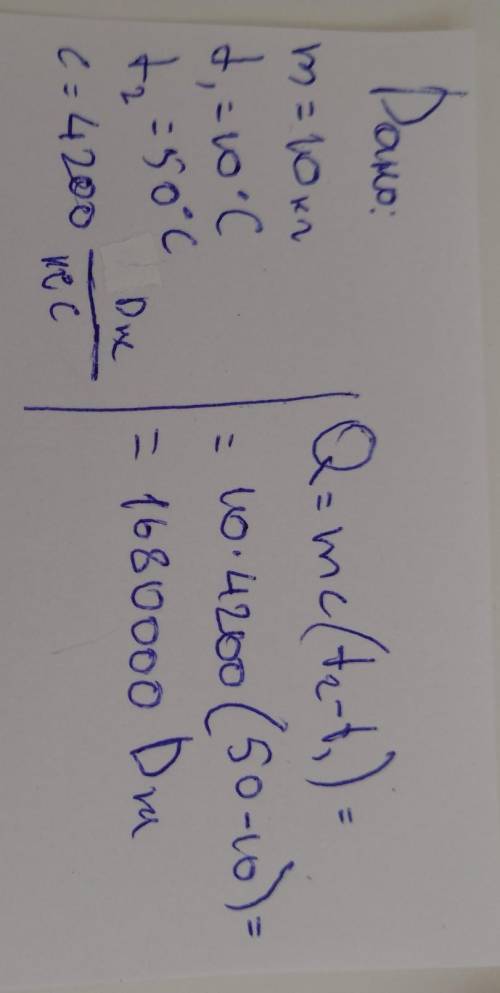 Дано:
m = 10 кг
t₁ = 10°C
t₂ = 50°C
c = 4200 Дж/кг°C
Q = mc(t₂-t₁) =
= 10·4200(50-10) =
= 1680000 Дж